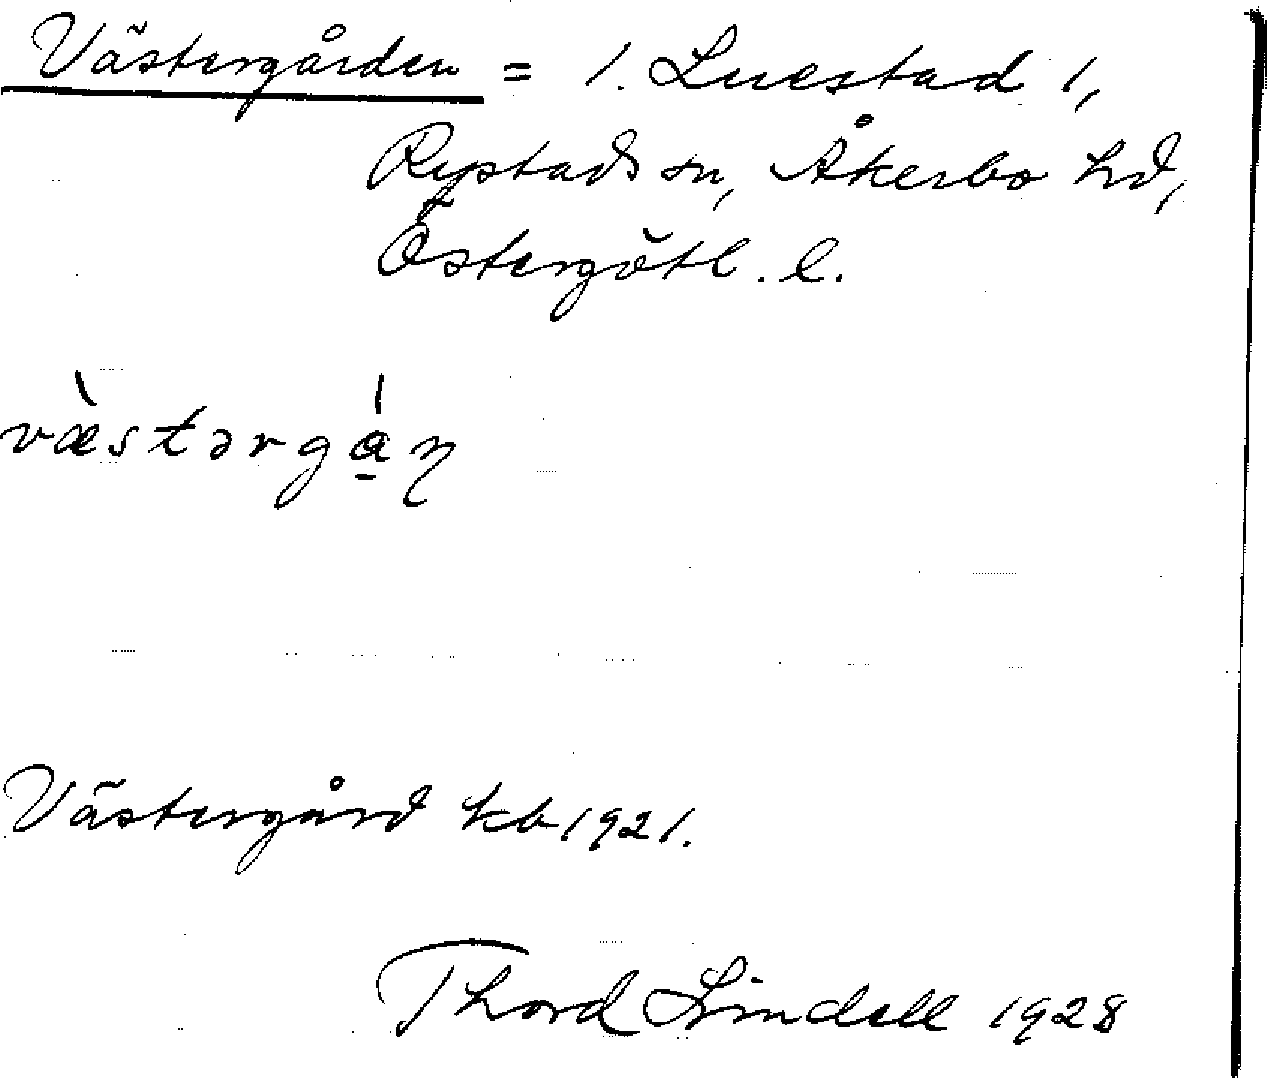 Västergården = 1. Luestad 1,
Rystads sn, Åkerbo hd,
Östergötl. l.
væ̀stərgá̱ɳ
Västergård kb 1921.
Thord Lindell 1928